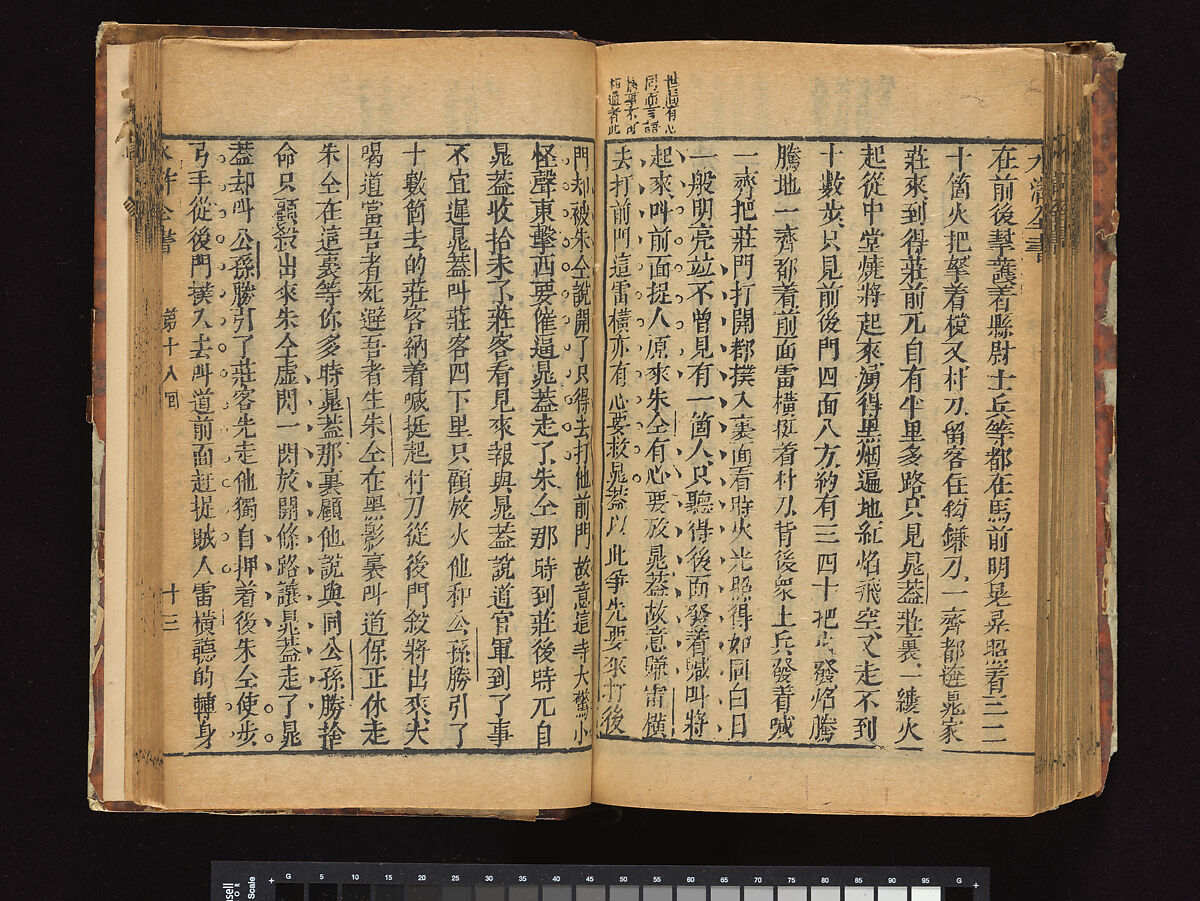 世間有心
同而言語
行事不可
相通者此
在前後擎護着縣尉士兵等都在馬前明晃晃照着三二
十箇火把拏着欓叉朴刀留客住鉤鐮刀一齊都遶晁家
莊來到得莊前兀自有半里多路只見晁葢莊裏一縷火
起從中堂燒將起來湧得黑烟遍地紅焰飛空又走不到
十數步只見前後門四面八方約有三四十把火發焰騰
騰地一齊都着前面雷橫挺着朴刀背後衆土兵發着喊
一齊把莊門打開都撲入裏面看時火光照得如同白日
一般明亮竝不曾見有一箇人只聽得後面發着喊叫將
起來叫前面捉人原來朱仝有心要放晁葢故意賺雷橫
去打前門這雷橫亦有心要救晁葢以此爭先要來打後
門却被朱仝說開了只得去打他前門故意這等大驚小
怪聲東擊西要催逼晁葢走了朱仝那時到莊後時兀自
晁葢收拾未了莊客看見來報與晁葢說道官軍到了事
不宜遲晁葢叫莊客四下里只顧放火他和公孫勝引了
十數箇去的莊客納着喊挺起朴刀從後門殺將出來大
喝道當吾者死避吾者生朱仝在黑影裏叫道保正休走
朱仝在這裏等你多時晁葢那裏顧他說與同公孫勝捨
命只顧殺出來朱仝虛閃一閃放開條路讓晁葢走了晁
葢却叫公孫勝引了莊客先走他獨自押着後朱仝使步
弓手從後門撲入去叫道前面赶捉賊人雷橫聽的轉身
水滸全書 第十八回 十三